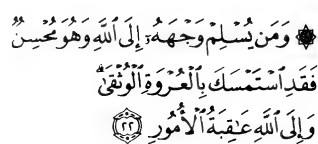 ۞ وَمَن يُسْلِمْ وَجْهَهُۥٓ إِلَى ٱللَّهِ وَهُوَ مُحْسِنٌ
فَقَدِ ٱسْتَمْسَكَ بِٱلْعُرْوَةِ ٱلْوُثْقَىٰۗ
وَإِلَى ٱللَّهِ عَٰقِبَةُ ٱلْأُمُورِ ۝٢٢